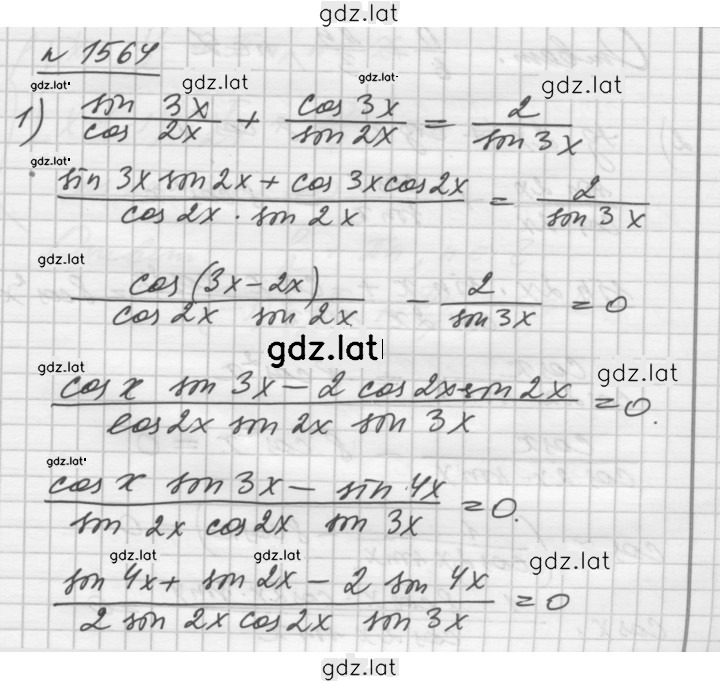 gdz.lat
n 1564
gdz.lat gdz.lat gdz.lat
1) sin 3x / cos 2x + cos 3x / sin 2x = 2 / sin 3x
gdz.lat
sin 3x sin 2x + cos 3x cos 2x / cos 2x · sin 2x = 2 / sin 3x
gdz.lat
cos (3x - 2x) / cos 2x sin 2x - 2 / sin 3x = 0
gdz.lat
gdz.lat gdz.lat
cos x sin 3x - 2 cos 2x sin 2x / cos 2x sin 2x sin 3x = 0.
gdz.lat
cos x sin 3x - sin 4x / sin 2x cos 2x sin 3x = 0.
gdz.lat gdz.lat gdz.lat
sin 4x + sin 2x - 2 sin 4x / 2 sin 2x cos 2x sin 3x = 0
gdz.lat